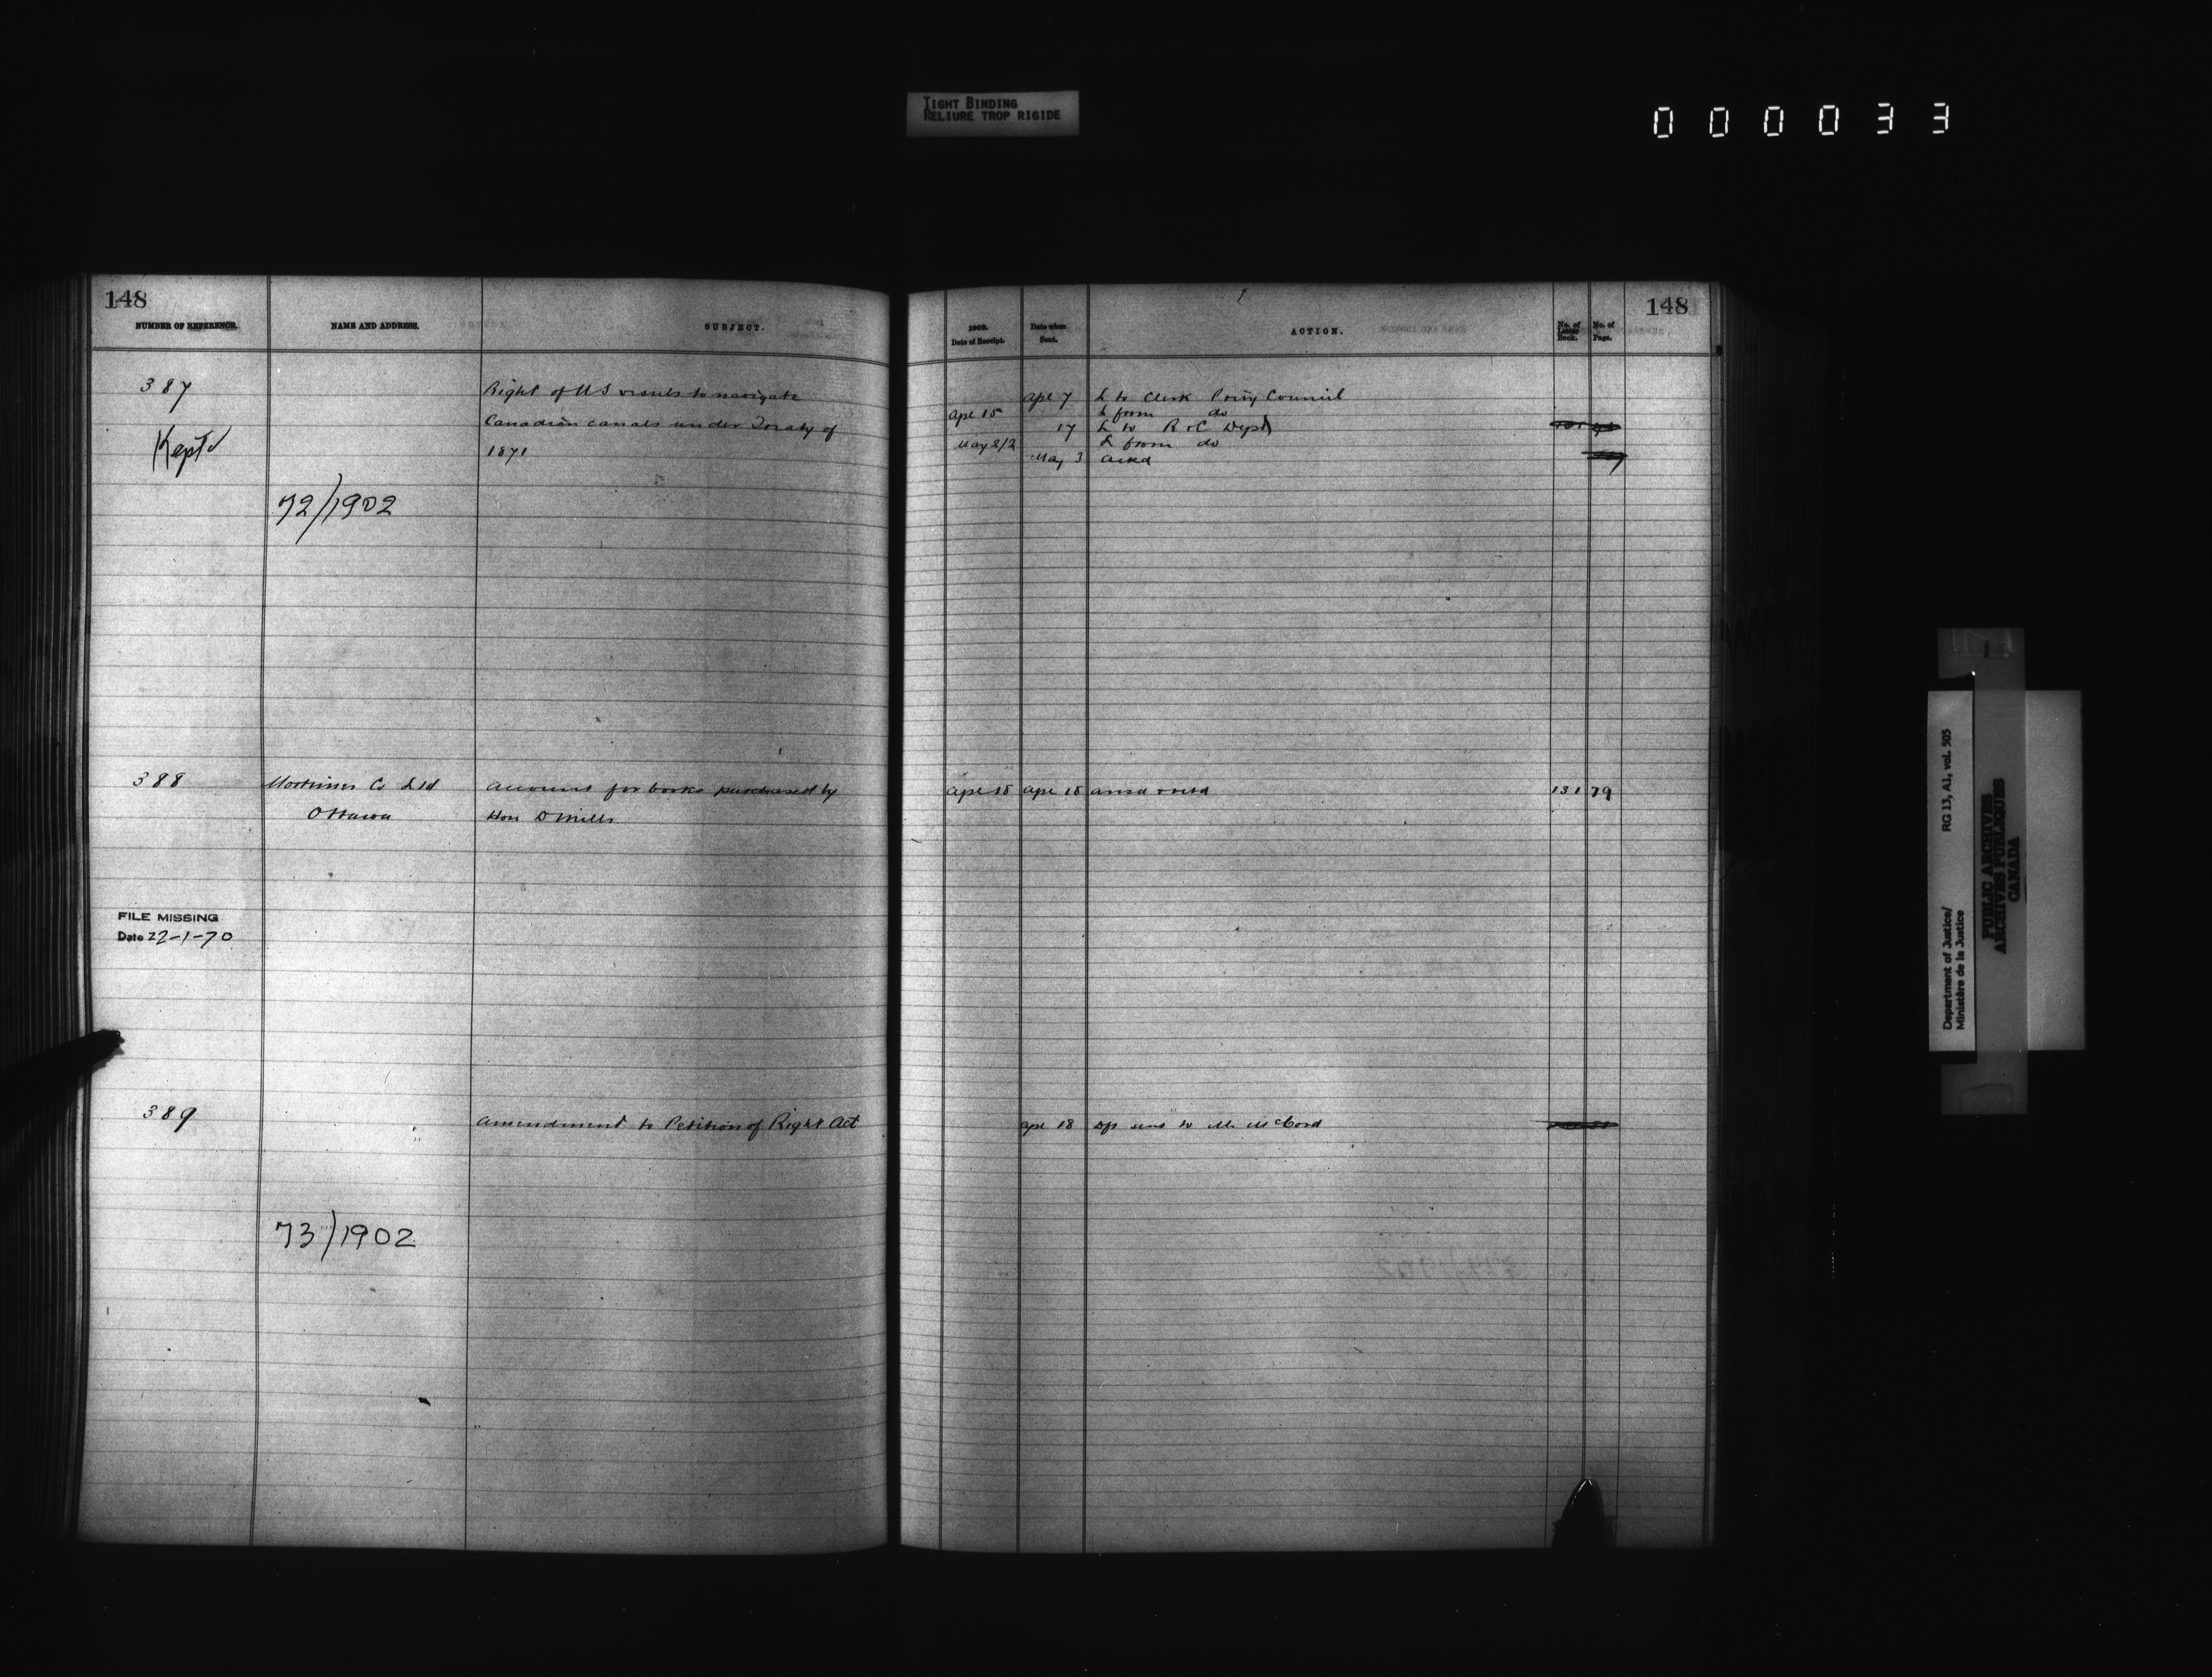 TIGHT BINDING
RELIURE TROP RIGIDE
000033
148
NUMBER OF REFERENCE.
NAME AND ADDRESS.
SUBJECT.
387
Right of US vessels to navigate
Canadian canals under Treaty of
1871
Kept
72/1902
388
Mortimer Co Ltd
Ottawa
Account for books purchased by
Hon D Mills
FILE MISSING
Date 22-1-70
389
Amendment to Petition of Right Act
73/1902
148
1902.
Date of Receipt.
Date when
Sent.
ACTION.
No. of
Letter
Book.
No. of
Page.
Ape 7 L to Clerk Privy Council
Ape 15 L from do
17 L to R & C Dept
May 2/2 L from do
May 3 Ackd
Ape 18 Ape 18 131 79
Ape 18 sent to Mr McCord
Department of Justice/
Ministère de la Justice
RG 13, A1, vol. 505
PUBLIC ARCHIVES
ARCHIVES PUBLIQUES
CANADA